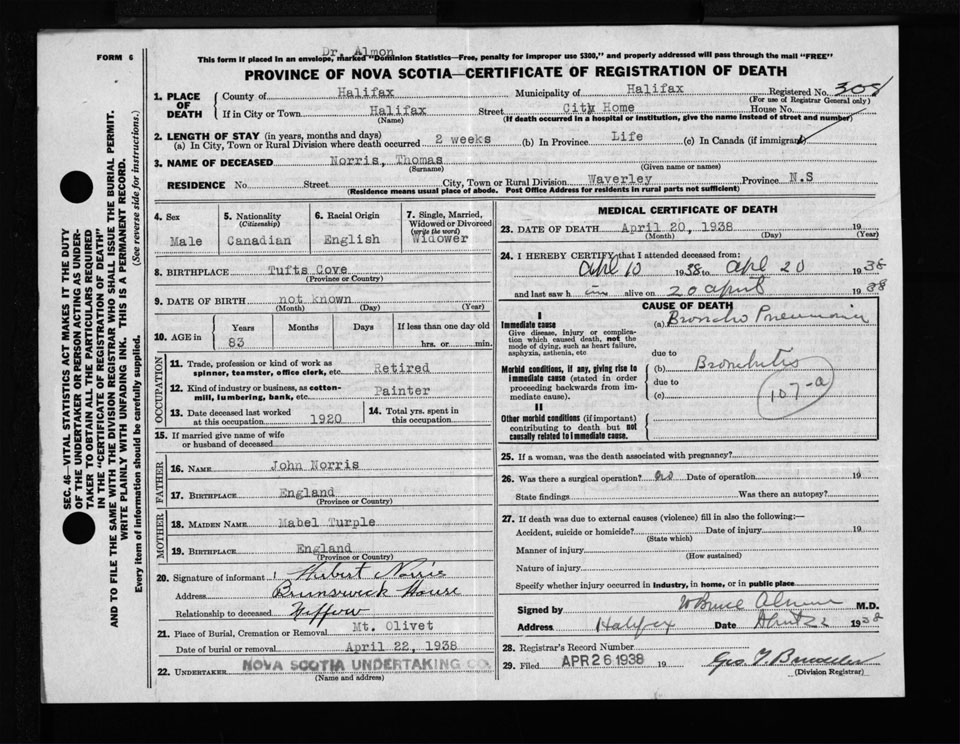 FORM 6
Dr. Almon
This form if placed in an envelope, marked "Dominion Statistics—Free, penalty for improper use $300," and properly addressed will pass through the mail "FREE"
PROVINCE OF NOVA SCOTIA—CERTIFICATE OF REGISTRATION OF DEATH
SEC. 46—VITAL STATISTICS ACT MAKES IT THE DUTY
OF THE UNDERTAKER OR PERSON ACTING AS UNDER-
TAKER TO OBTAIN ALL THE PARTICULARS REQUIRED
IN THE "CERTIFICATE OF REGISTRATION OF DEATH"
AND TO FILE THE SAME WITH THE DIVISION REGISTRAR WHO SHALL ISSUE THE BURIAL PERMIT.
WRITE PLAINLY WITH UNFADING INK. THIS IS A PERMANENT RECORD.
Every item of information should be carefully supplied. (See reverse side for instructions.)
1. PLACE OF DEATH County of Halifax Municipality of Halifax Registered No.
(For use of Registrar General only)
If in City or Town Halifax Street City Home House No.
(Name) (If death occurred in a hospital or institution, give the name instead of street and number)
2. LENGTH OF STAY (in years, months and days)
(a) In City, Town or Rural Division where death occurred 2 weeks (b) In Province Life (c) In Canada (if immigrant)
3. NAME OF DECEASED Norris, Thomas
(Surname) (Given name or names)
RESIDENCE No. Street City, Town or Rural Division Waverley Province N.S
(Residence means usual place of abode. Post Office Address for residents in rural parts not sufficient)
4. Sex Male
5. Nationality (Citizenship) Canadian
6. Racial Origin English
7. Single, Married, Widowed or Divorced (write the word) Widower
8. BIRTHPLACE Tufts Cove
(Province or Country)
9. DATE OF BIRTH not known
(Month) (Day) (Year)
10. AGE in Years Months Days If less than one day old
83 hrs. or min.
OCCUPATION
11. Trade, profession or kind of work as spinner, teamster, office clerk, etc. Retired
12. Kind of industry or business, as cotton-mill, lumbering, bank, etc. Painter
13. Date deceased last worked at this occupation 1920
14. Total yrs. spent in this occupation
15. If married give name of wife or husband of deceased
FATHER
16. NAME John Norris
17. BIRTHPLACE England
(Province or Country)
MOTHER
18. MAIDEN NAME Mabel Turple
19. BIRTHPLACE England
(Province or Country)
20. Signature of informant Herbert Norris
Address Brunswick House
Relationship to deceased
21. Place of Burial, Cremation or Removal Mt. Olivet
Date of burial or removal April 22, 1938
22. UNDERTAKER NOVA SCOTIA UNDERTAKING CO.
(Name and address)
MEDICAL CERTIFICATE OF DEATH
23. DATE OF DEATH April 20, 1938 19
(Month) (Day) (Year)
24. I HEREBY CERTIFY that I attended deceased from:
Apl 10 1938 to Apl 20 1938
and last saw h im alive on 20 April 1938
CAUSE OF DEATH
I
Immediate cause (a) Broncho Pneumonia
Give disease, injury or complication which caused death, not the mode of dying, such as heart failure, asphyxia, asthenia, etc
due to
Morbid conditions, if any, giving rise to immediate cause (stated in order proceeding backwards from immediate cause). (b) Bronchitis
due to
(c)
107-a
II
Other morbid conditions (if important) contributing to death but not causally related to immediate cause.
25. If a woman, was the death associated with pregnancy?
26. Was there a surgical operation? no Date of operation 19
State findings Was there an autopsy?
27. If death was due to external causes (violence) fill in also the following:—
Accident, suicide or homicide? Date of injury 19
(State which)
Manner of injury
(How sustained)
Nature of injury
Specify whether injury occurred in industry, in home, or in public place
Signed by W Bruce Almon M.D.
Address Halifax Date 1938
28. Registrar's Record Number
29. Filed APR 26 1938 19
(Division Registrar)